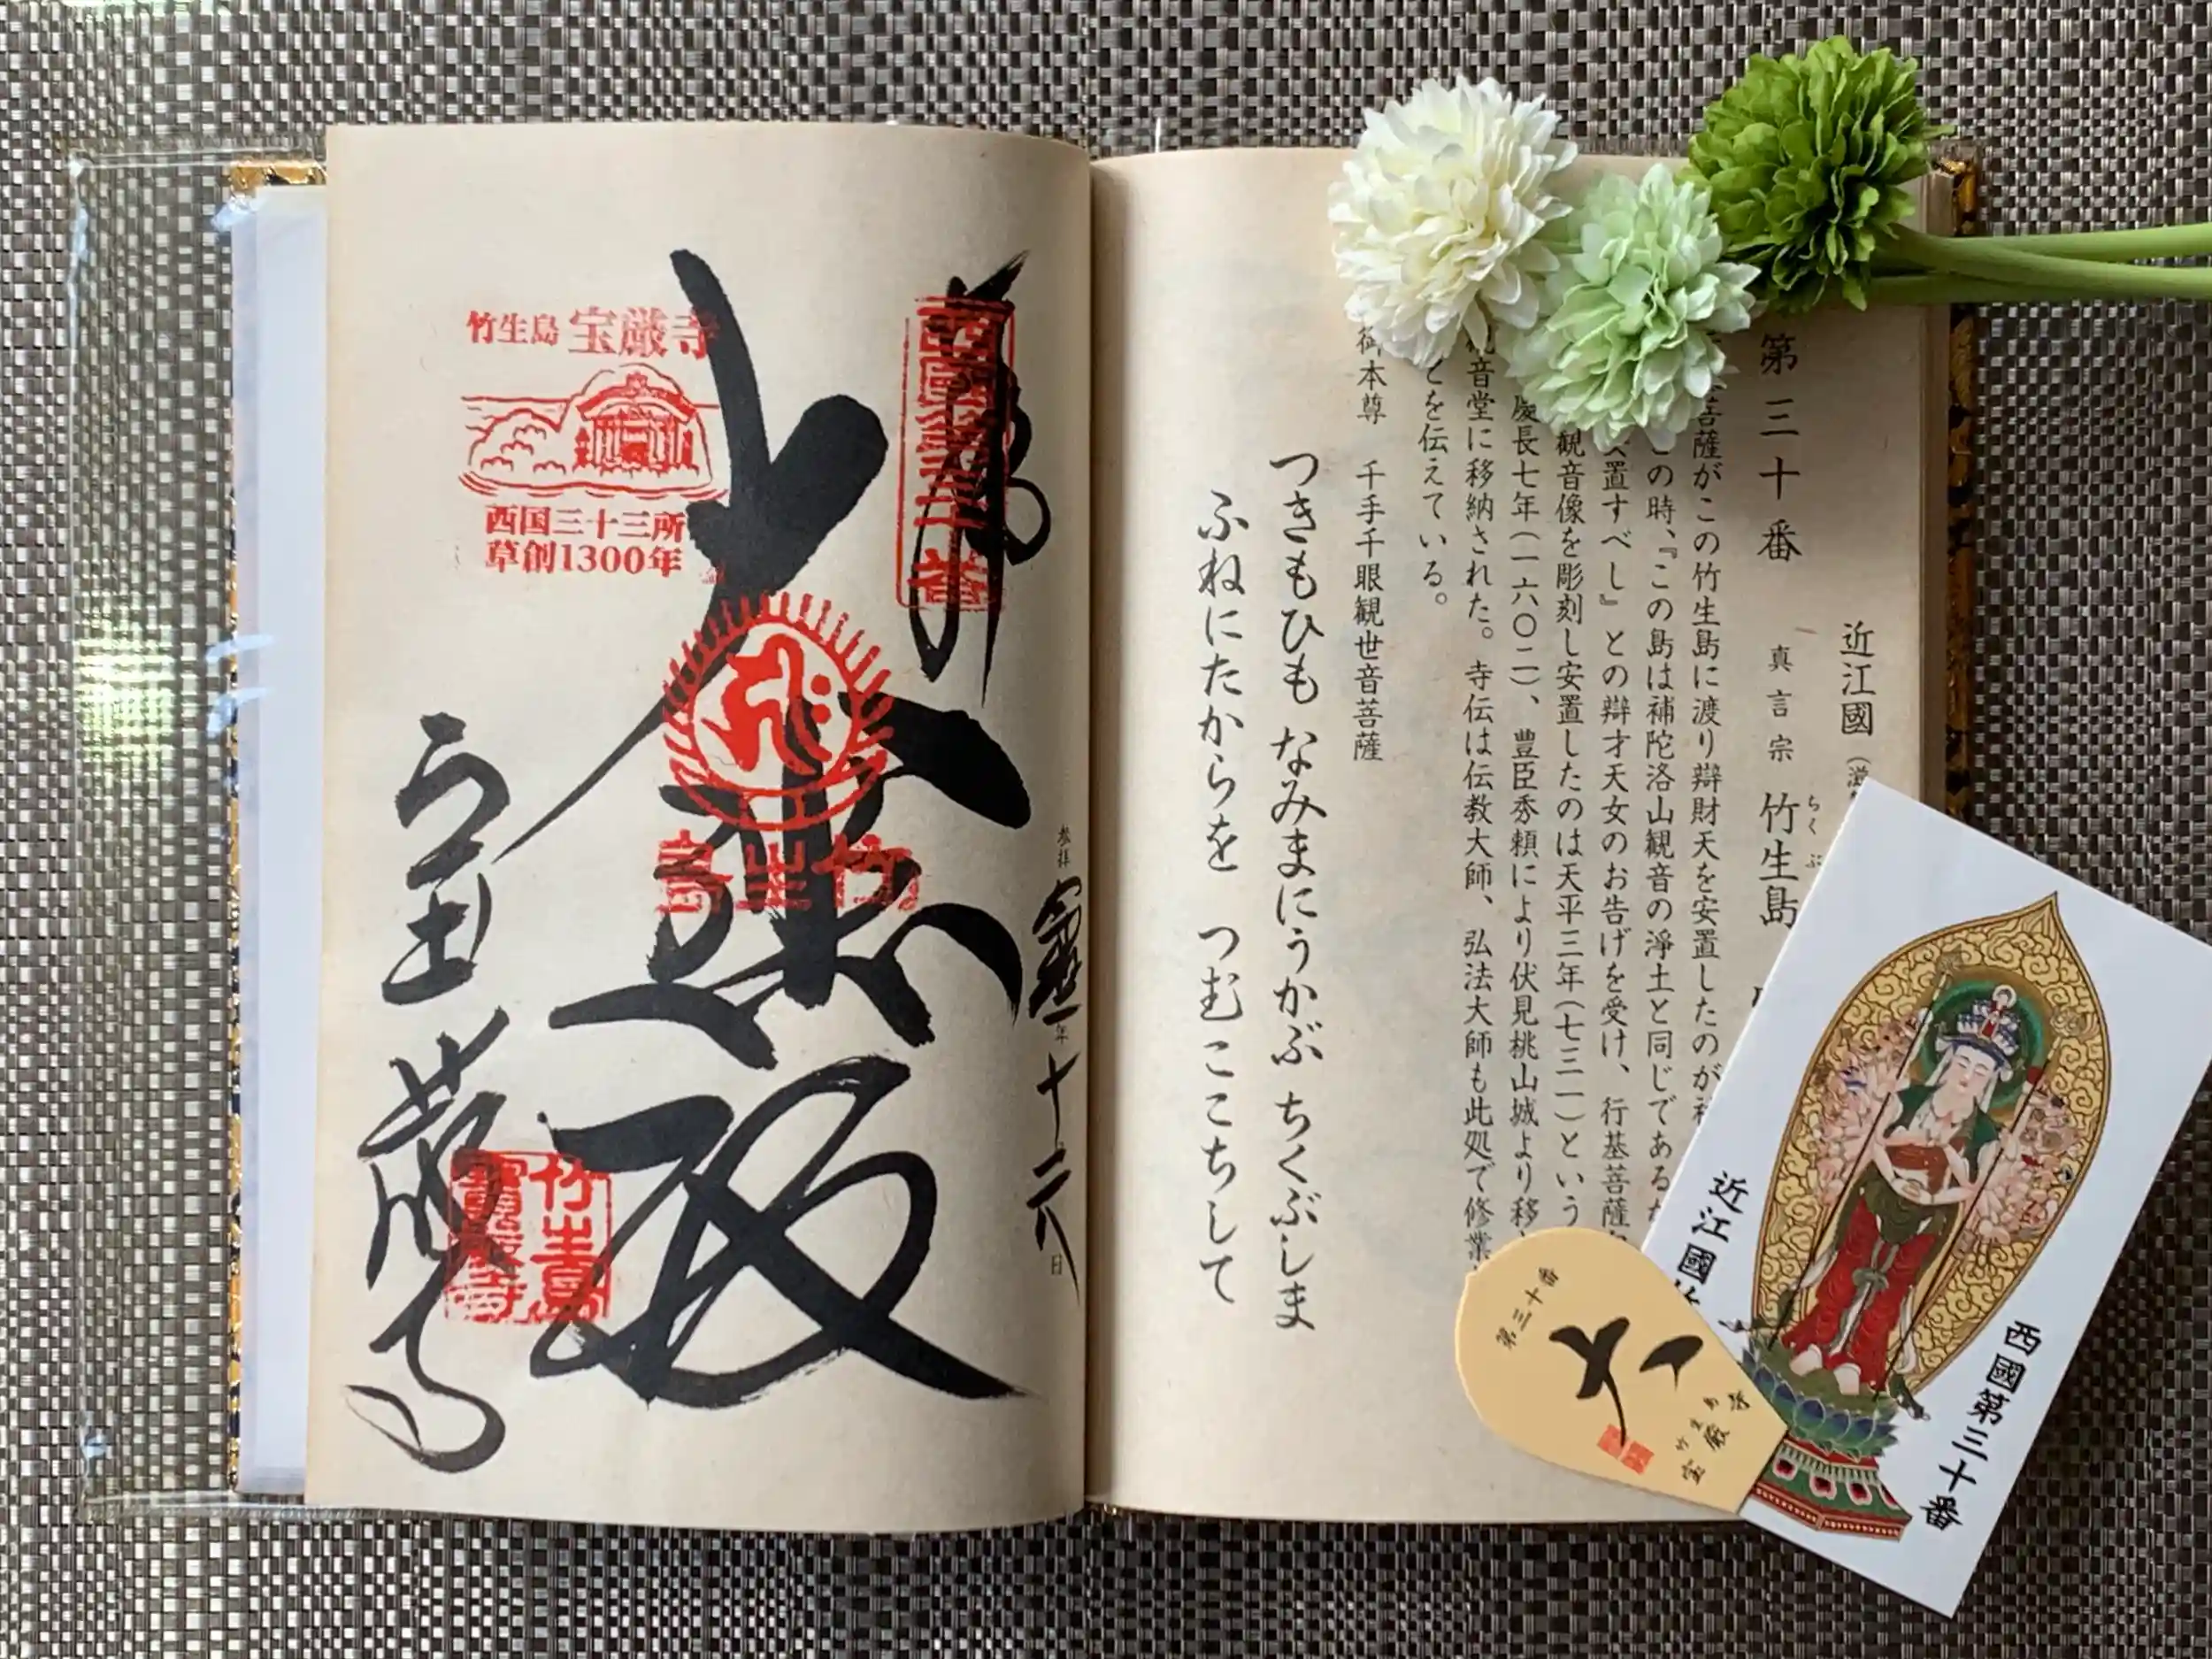 近江國(滋
第三十番 真言宗 竹生島
ちくぶ
菩薩がこの竹生島に渡り辯財天を安置したのが
の時、『この島は補陀洛山観音の淨土と同じである
安置すべし』との辯才天女のお告げを受け、行基菩薩
観音像を彫刻し安置したのは天平三年(七三一)という
慶長七年(一六〇二)、豊臣秀頼により伏見桃山城より移
観音堂に移納された。寺伝は伝教大師、弘法大師も此処で修業
とを伝えている。
御本尊 千手千眼観世音菩薩
つきもひも なみまにうかぶ ちくぶしま
ふねにたからを つむここちして
奉拝
年十二月
日
西國第三十番
大悲殿
竹生島
竹生島 宝厳寺
西国三十三所
草創1300年
宝厳寺
竹生島
寶嚴寺
西國第三十番
近江國竹
第三十番
大
竹生島
宝厳寺